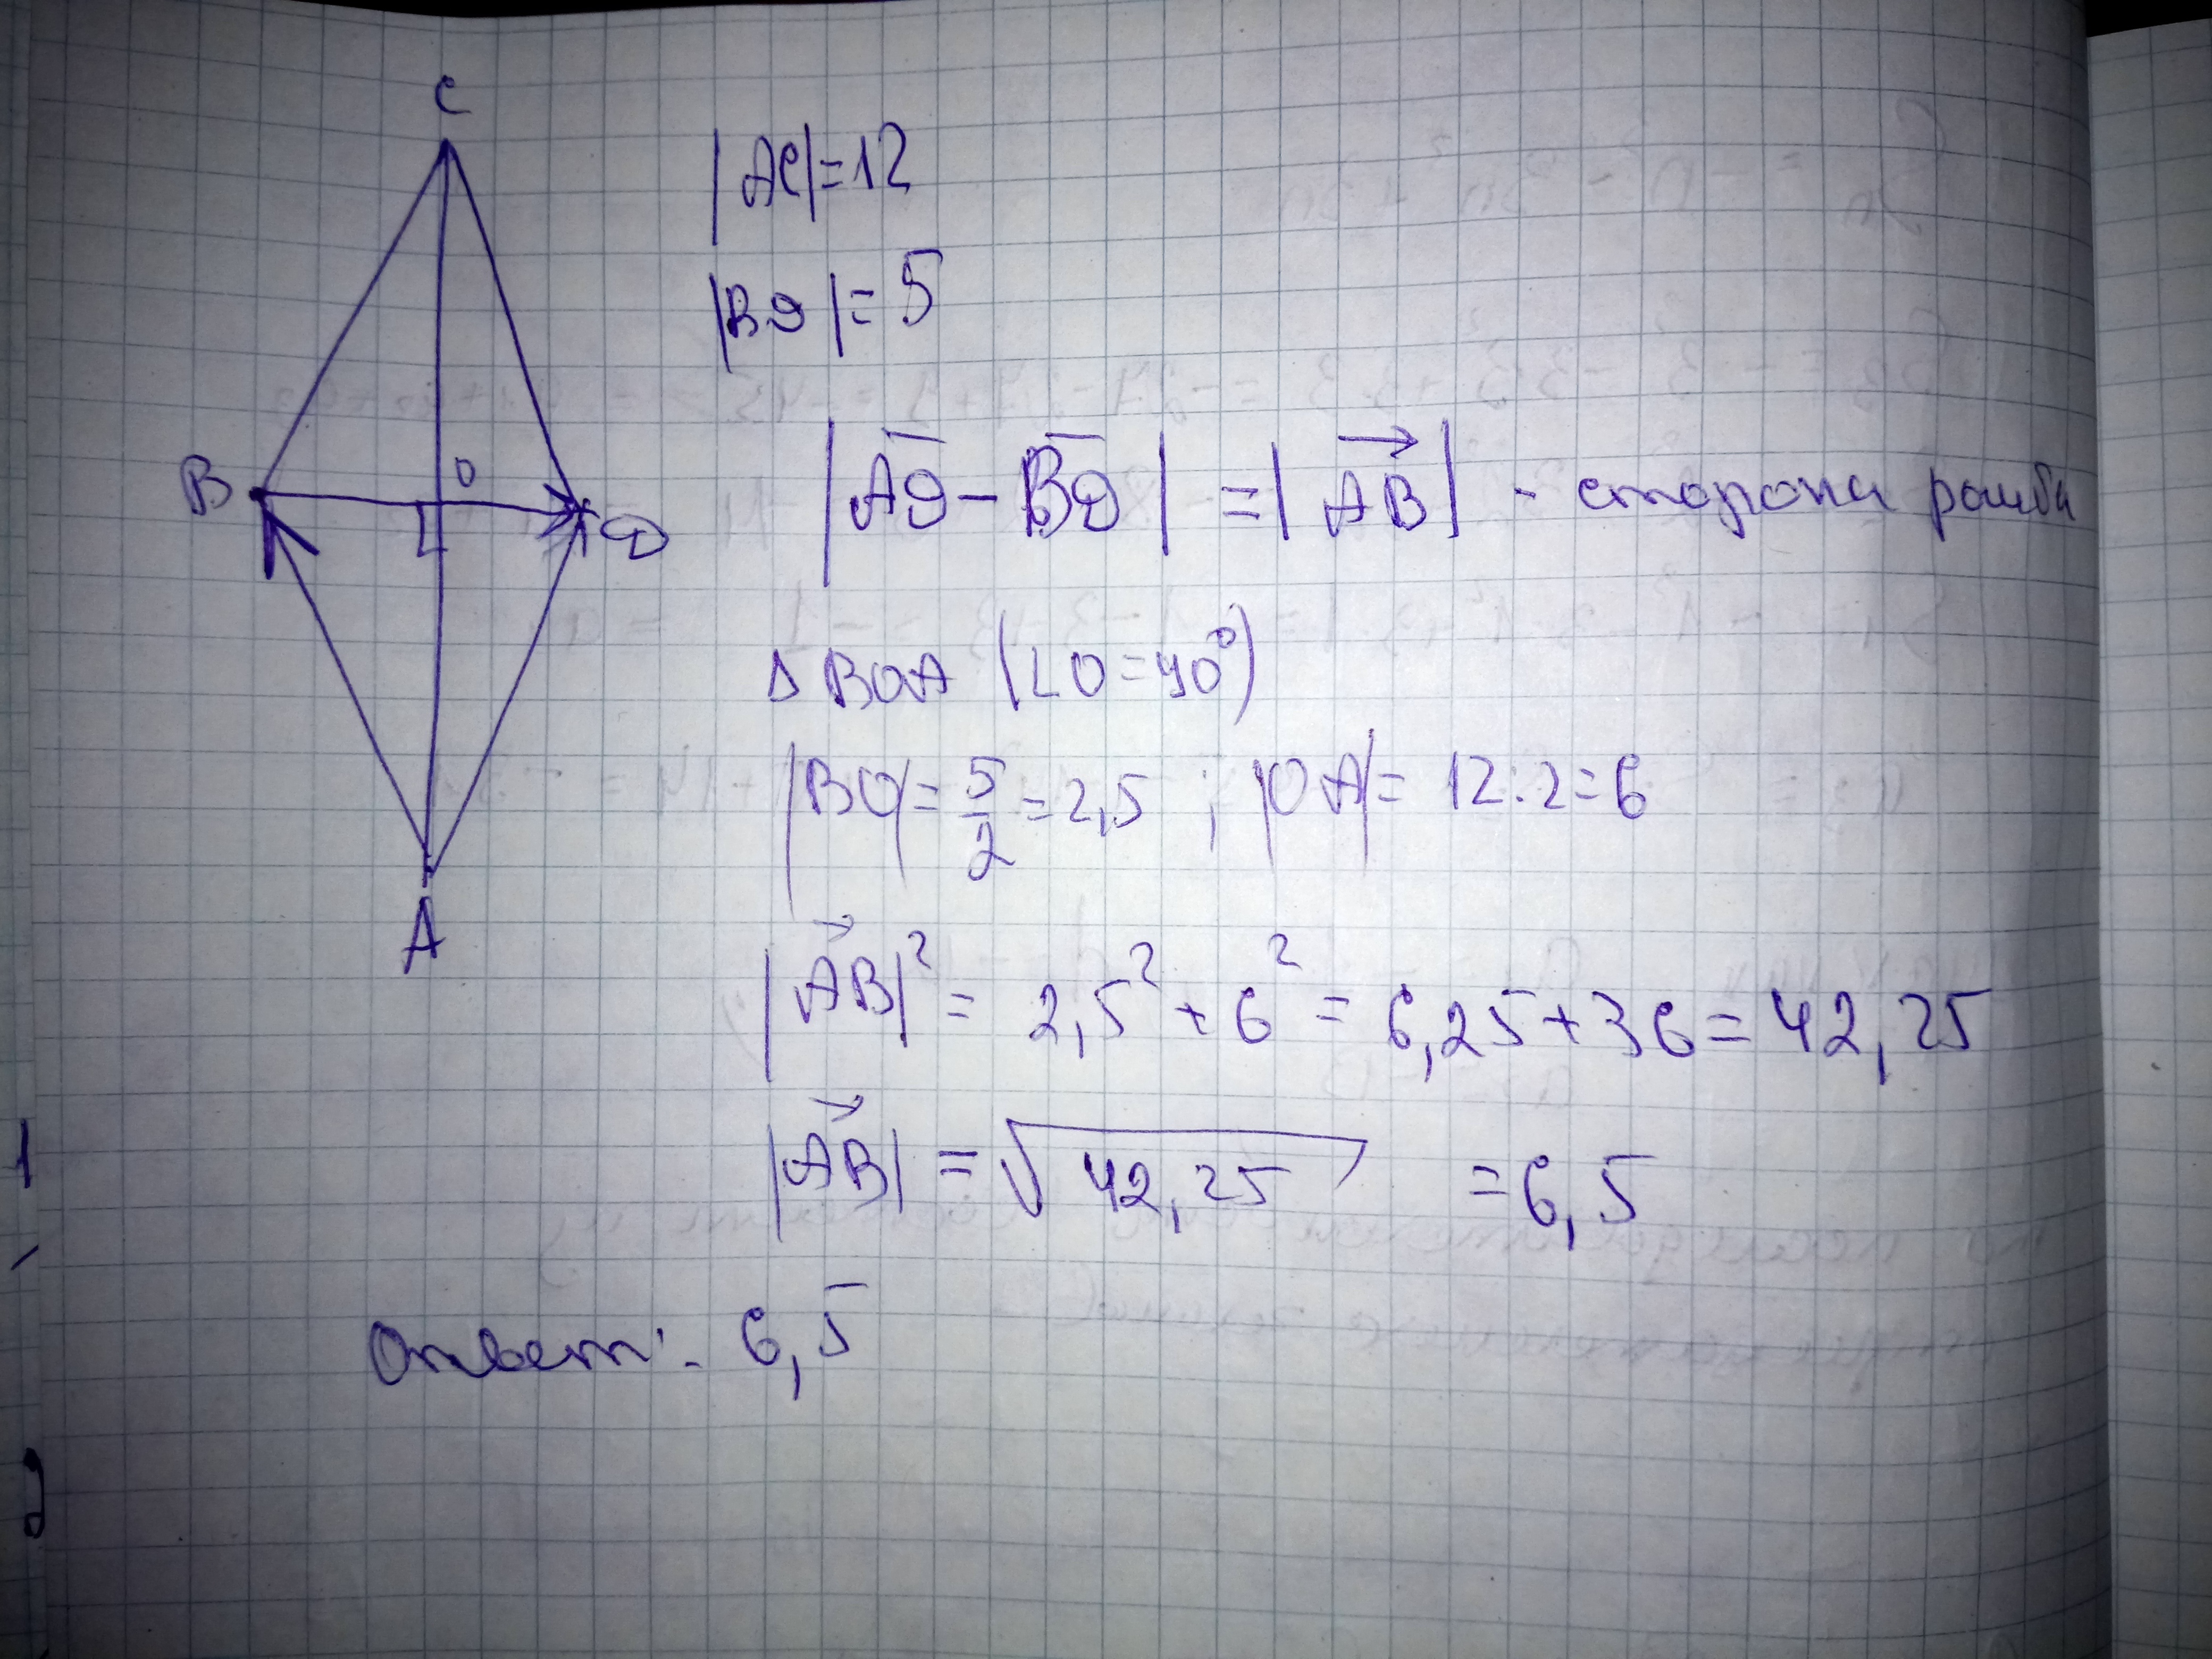 C
|AC|=12
|BD|=5
B
O
D
|AD - BD| = |AB| - сторона ромба
A
Δ BOA (∠O = 90°)
|BO| = 5/2 = 2,5 ; |OA| = 12:2=6
|AB|² = 2,5² + 6² = 6,25+36=42,25
|AB| = √42,25 = 6,5
Ответ: - 6,5